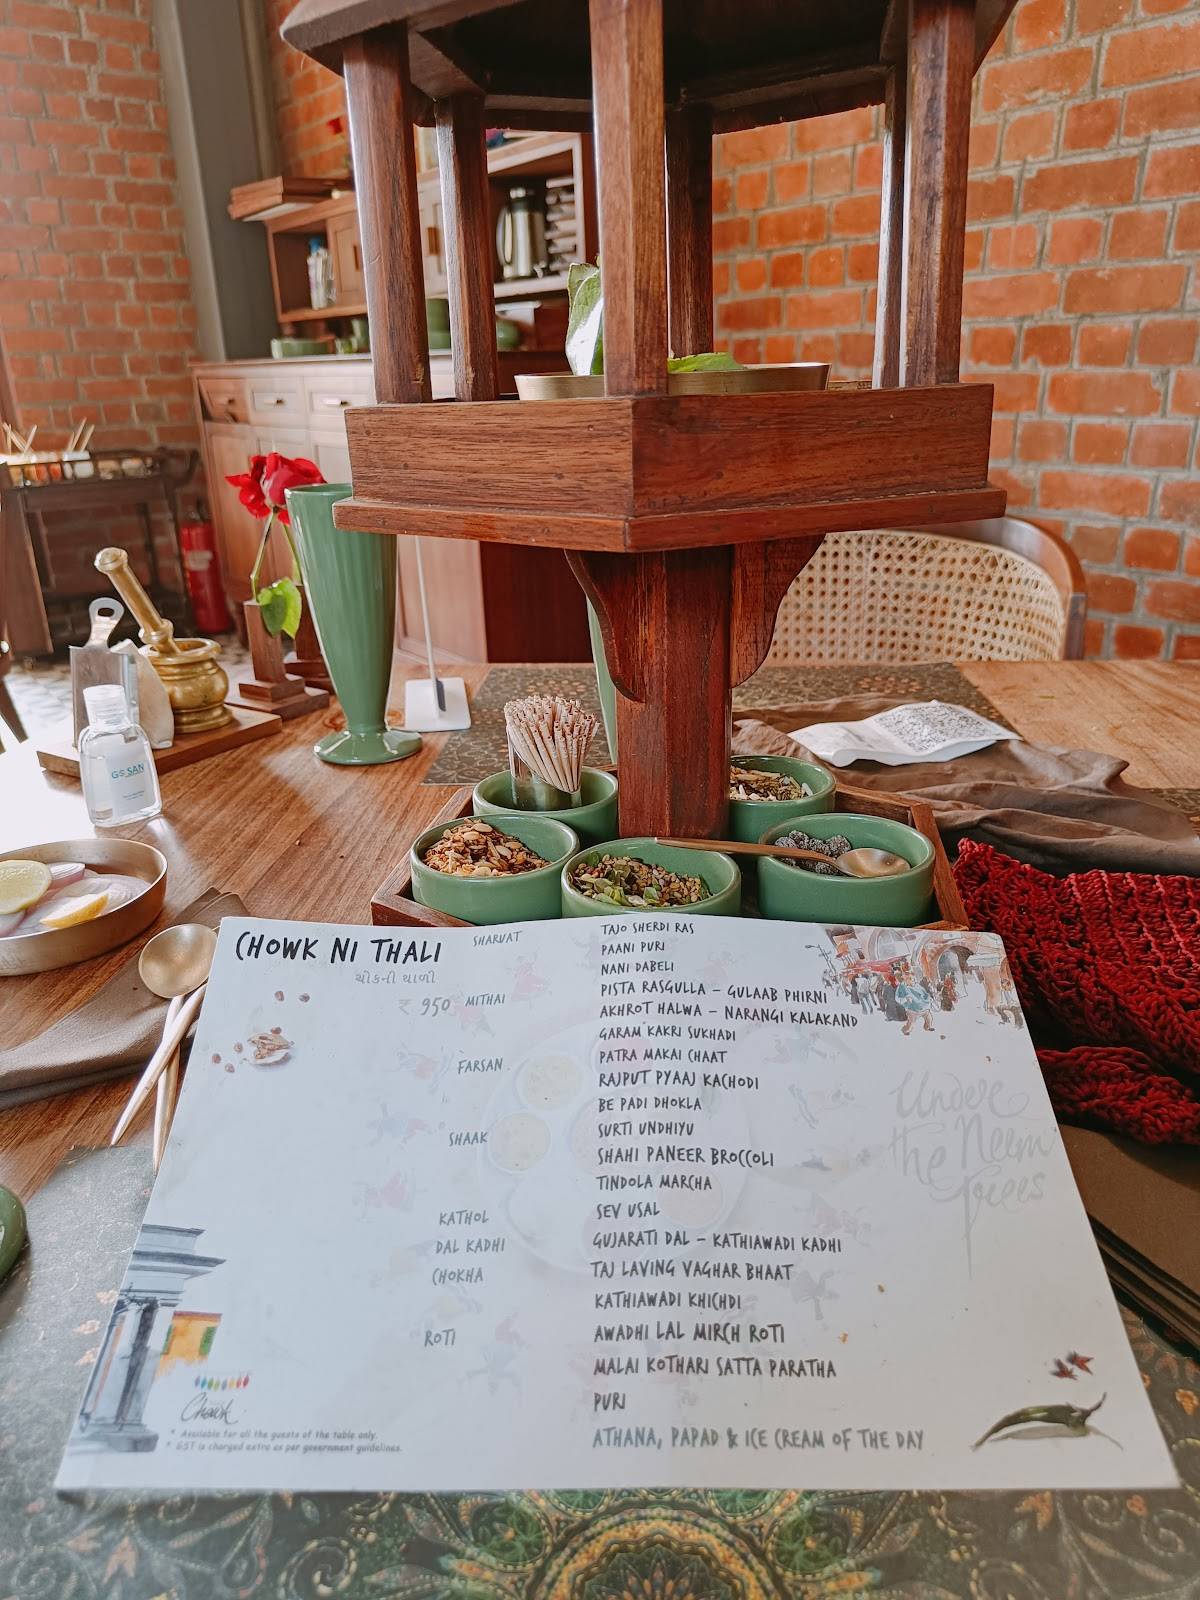 GS SAN
CHOWK NI THALI
ચોકની થાળી
₹ 950
SHARVAT
TAJO SHERDI RAS
PAANI PURI
NANI DABELI
MITHAI
PISTA RASGULLA – GULAAB PHIRNI
AKHROT HALWA – NARANGI KALAKAND
GARAM KAKRI SUKHADI
FARSAN
PATRA MAKAI CHAAT
RAJPUT PYAAJ KACHODI
BE PADI DHOKLA
SHAAK
SURTI UNDHIYU
SHAHI PANEER BROCCOLI
TINDOLA MARCHA
KATHOL
SEV USAL
DAL KADHI
GUJARATI DAL – KATHIAWADI KADHI
CHOKHA
TAJ LAVING VAGHAR BHAAT
KATHIAWADI KHICHDI
ROTI
AWADHI LAL MIRCH ROTI
MALAI KOTHARI SATTA PARATHA
PURI
ATHANA, PAPAD & ICE CREAM OF THE DAY
Under
the Neem
Trees
Chowk
* Available for all the guests of the table only.
* GST is charged extra as per government guidelines.